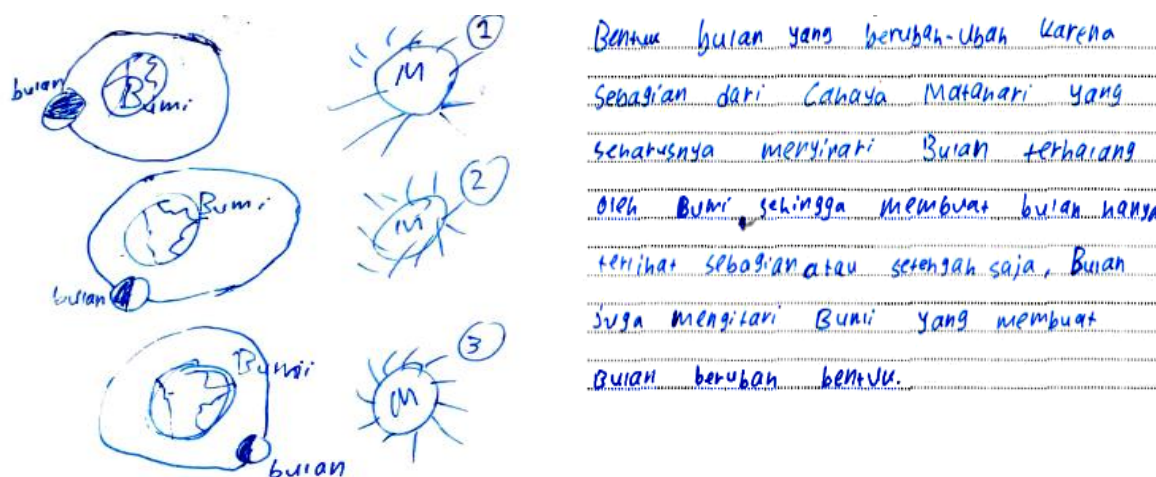 bulan
Bumi
M
1
Bumi
bulan
M
2
Bumi
bulan
M
3
Bentuk bulan yang berubah-ubah karena
sebagian dari Cahaya Matahari yang
seharusnya menyinari Bulan terhalang
oleh Bumi sehingga membuat bulan hanya
terlihat sebagian atau setengah saja, Bulan
juga mengitari Bumi yang membuat
Bulan berubah bentuk.